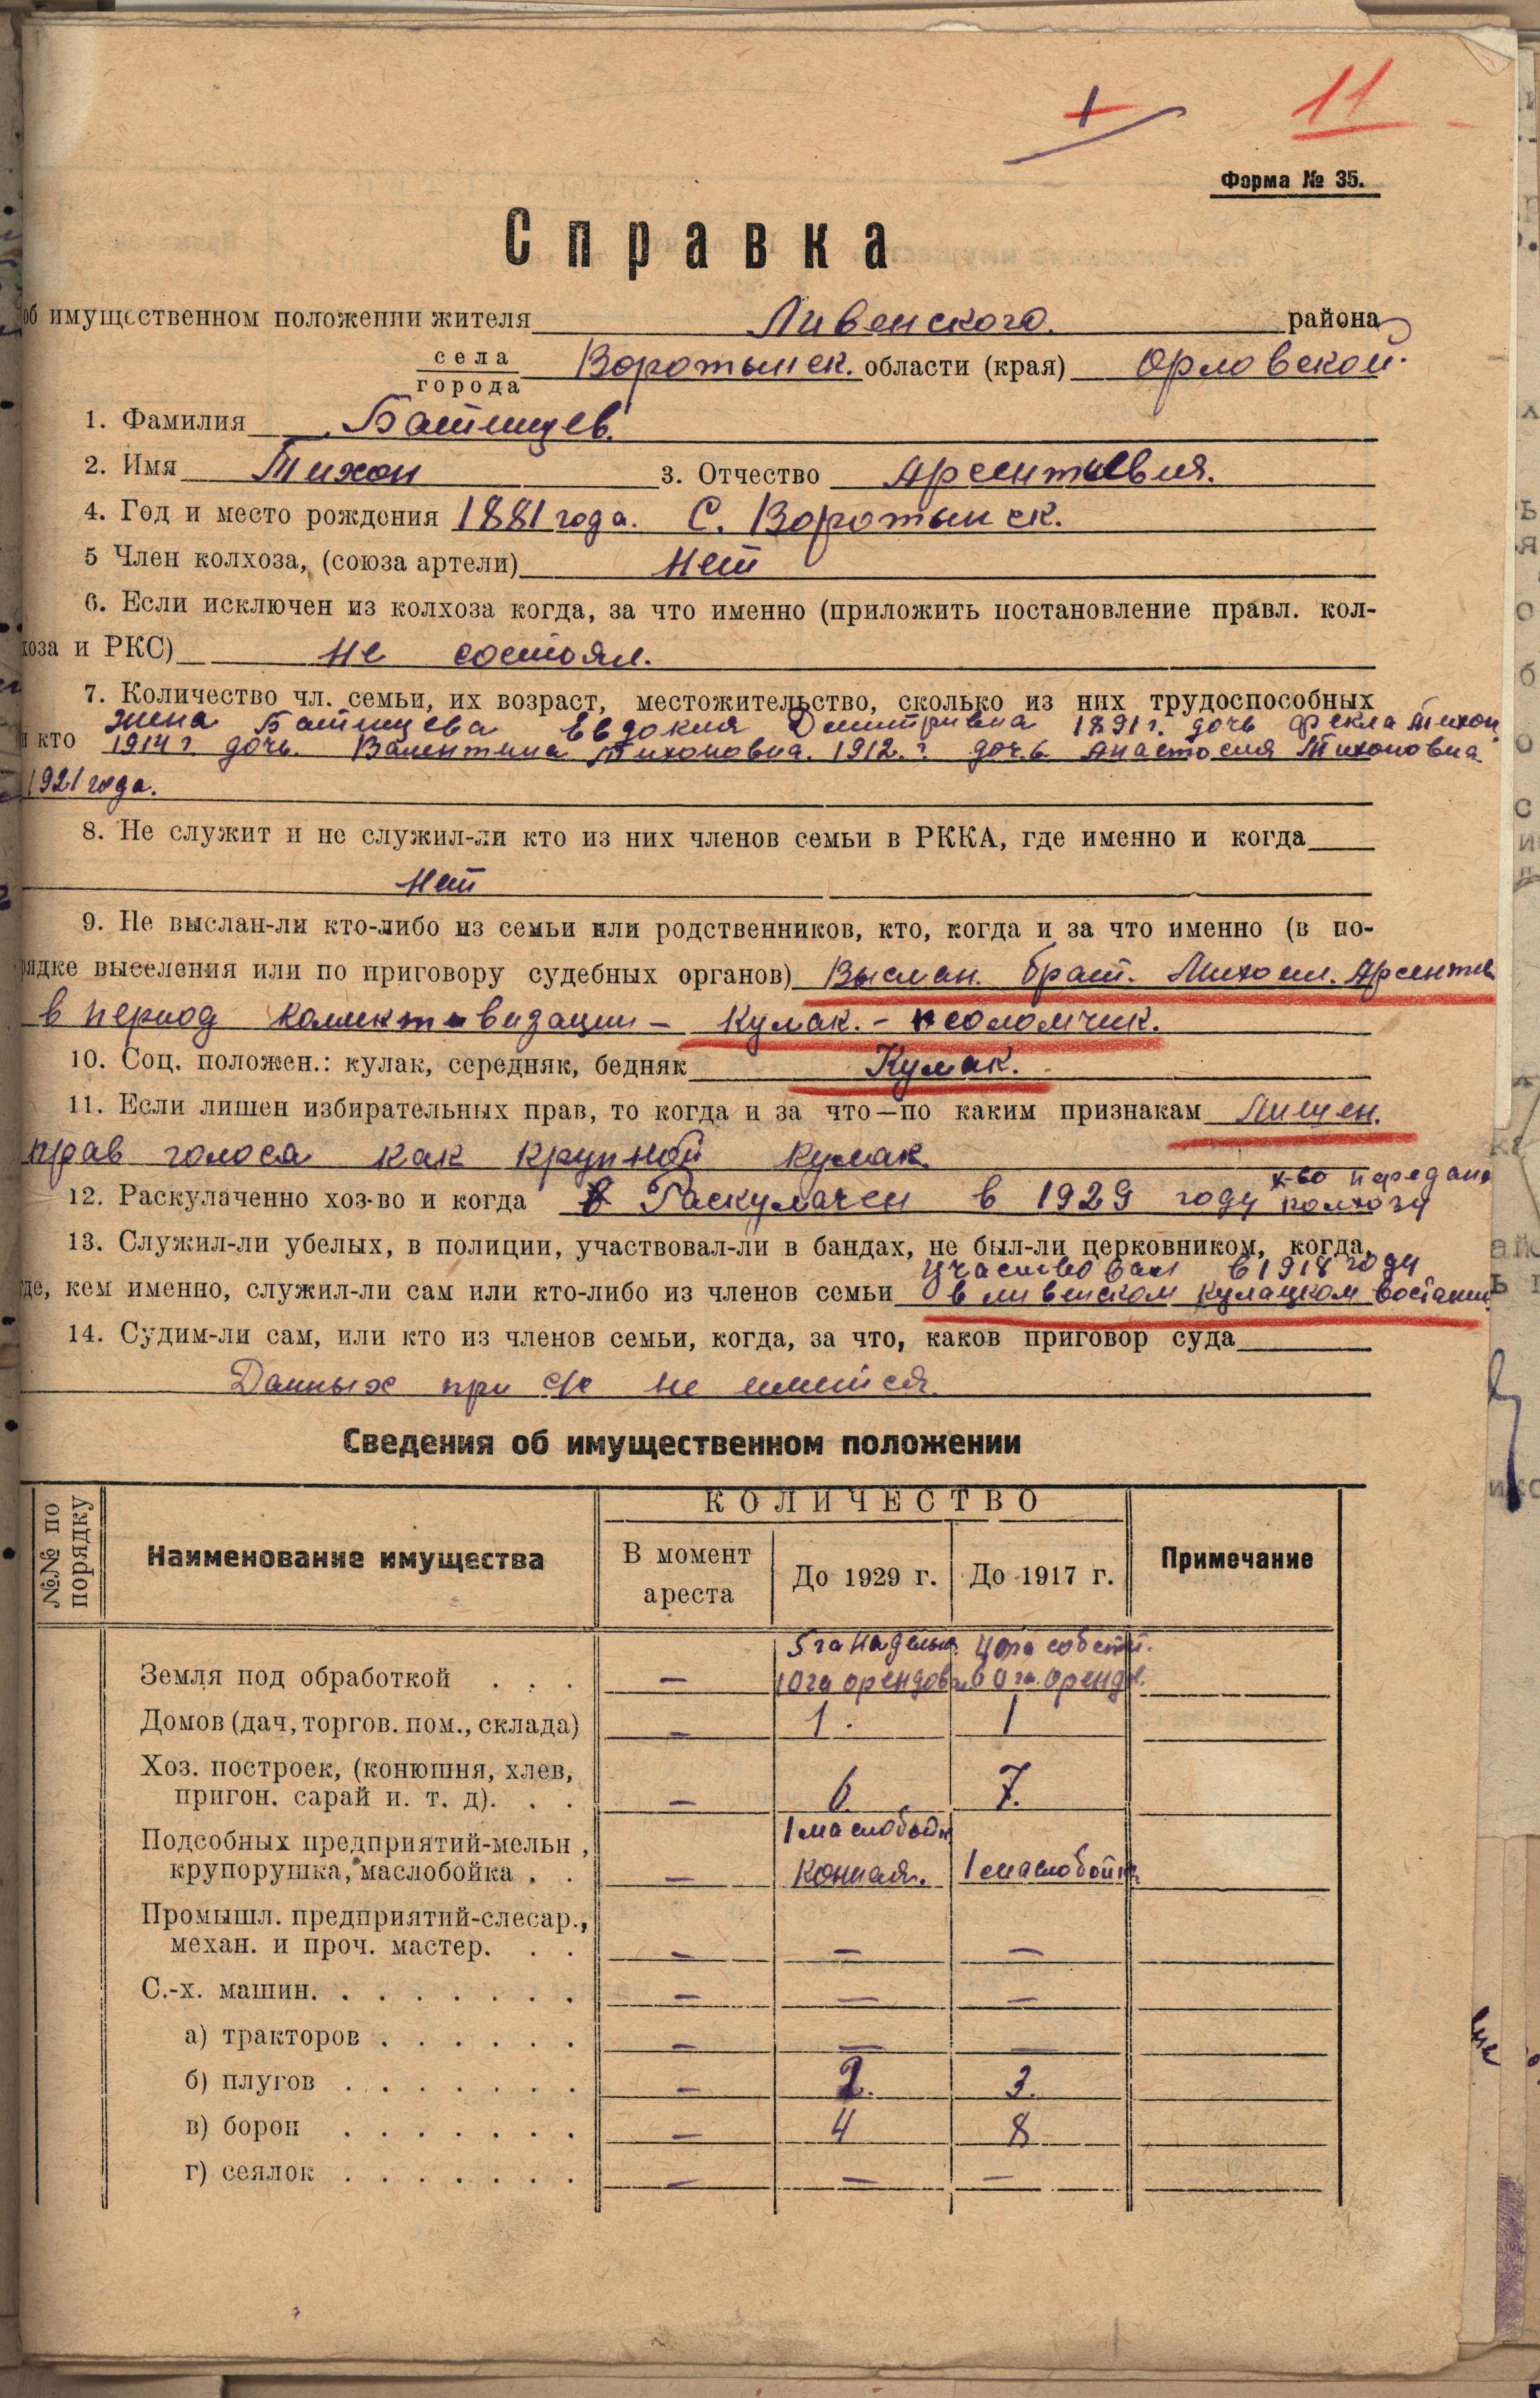 11
Форма № 35.
Справка
об имущественном положении жителя Ливенского района
села
города
Воротынск. области (края) Орловской.
1. Фамилия Батищев.
2. Имя Тихон 3. Отчество Арсентьевич.
4. Год и место рождения 1881 года. С. Воротынск.
5 Член колхоза, (союза артели) Нет
6. Если исключен из колхоза когда, за что именно (приложить постановление правл. кол-
хоза и РКС) не состоял.
7. Количество чл. семьи, их возраст, местожительство, сколько из них трудоспособных
жена Батищева Евдокия Дмитривна 1891 г. дочь Фекла Тихон
и кто 1914 г дочь. Валентина Тихоновна. 1912. г дочь Анастосия Тихоновна
1921 года.
8. Не служит и не служил-ли кто из них членов семьи в РККА, где именно и когда
Нет
9. Не выслан-ли кто-либо из семьи или родственников, кто, когда и за что именно (в по-
рядке выселения или по приговору судебных органов) Выслан. брат. Михоил. Арсентье
в период коллективизации – кулак. –
10. Соц. положен.: кулак, середняк, бедняк Кулак.
11. Если лишен избирательных прав, то когда и за что—по каким признакам Лишен.
прав голоса как крупной кулак
12. Раскулаченно хоз-во и когда Раскулачен в 1929 году х-во передано
колхозу
13. Служил-ли убелых, в полиции, участвовал-ли в бандах, не был-ли церковником, когда,
участвовал в 1918 году
где, кем именно, служил-ли сам или кто-либо из членов семьи в ливенском кулацком востании
14. Судим-ли сам, или кто из членов семьи, когда, за что, каков приговор суда
Данных при с/с не имеится.
Сведения об имущественном положении
№№ по порядку
Наименование имущества
КОЛИЧЕСТВО
В момент ареста
До 1929 г.
До 1917 г.
Примечание
5 га надельн. собств.
Земля под обработкой . . . — 10 га орендов. га. оренд.
Домов (дач, торгов. пом., склада) — 1. 1
Хоз. построек, (конюшня, хлев,
пригон. сарай и. т. д). . . — 6. 7.
Подсобных предприятий-мельн , 1 маслобойн
крупорушка, маслобойка . . — конная. 1 маслобойн.
Промышл. предприятий-слесар.,
механ. и проч. мастер. . . — — —
С.-х. машин. . . . . . . — — —
а) тракторов . . . . . — — —
б) плугов . . . . . . — 2. 3.
в) борон . . . . . . — 4 8
г) сеялок . . . . . . — — —